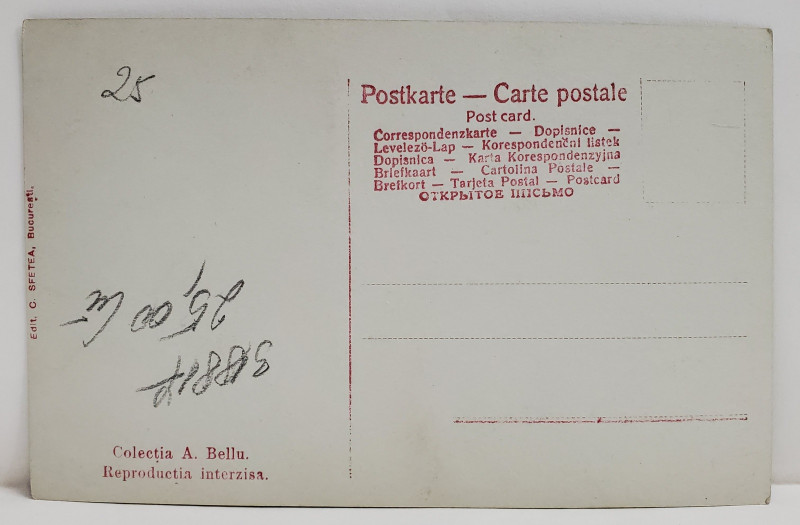 25
Postkarte — Carte postale
Post card.
Correspondenzkarte — Dopisnice —
Levelezö-Lap — Korespondenční listek
Dopisnica — Karta Korespondenzyjna
Briefkaart — Cartolina Postale —
Brefkort — Tarjeta Postal — Postcard
ОТКРЫТОЕ ПИСЬМО
Edit. C. SFETEA, București.
25,00 lei
Colecția A. Bellu.
Reproductia interzisa.